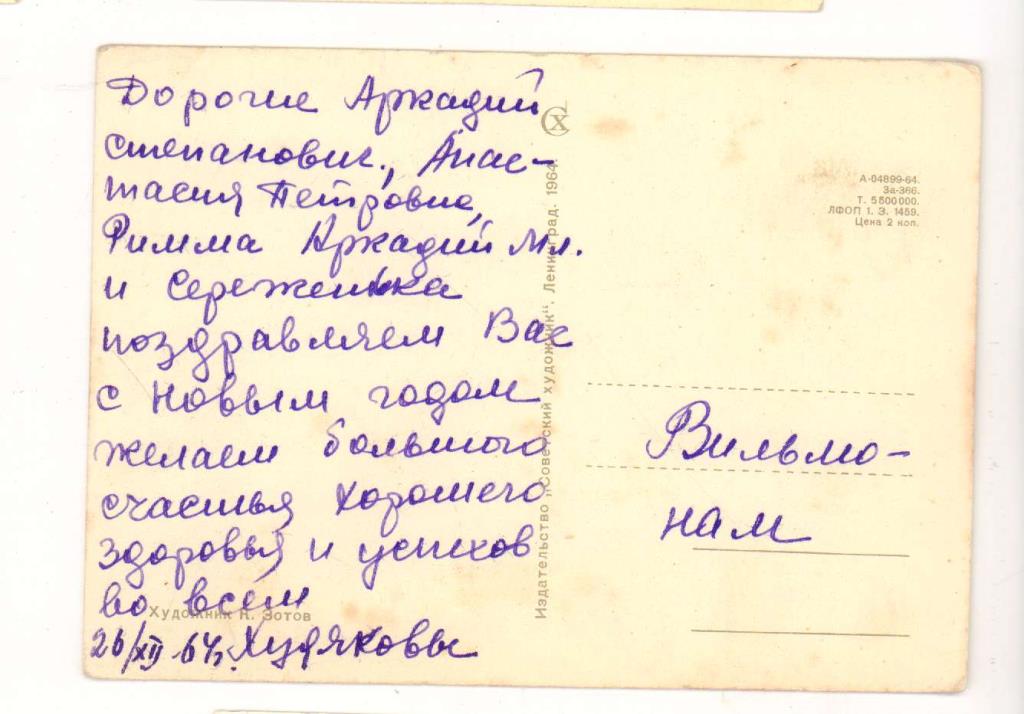 Дорогие Аркадий
Степанович., Анас-
тасия Петровна,
Римма Аркадий мл.
и Сереженька
поздравляем Вас
с Новым годом
желаем большого
счастья хорошего
здоровья и успехов
во всем
26/XII 64г. Худяковы
Художник К. Зотов
Издательство „Советский художник“. Ленинград. 1964
СХ
А-04899-64.
За-366.
Т. 5500000.
ЛФОП 1. З. 1459.
Цена 2 коп.
Вильмо-
нам